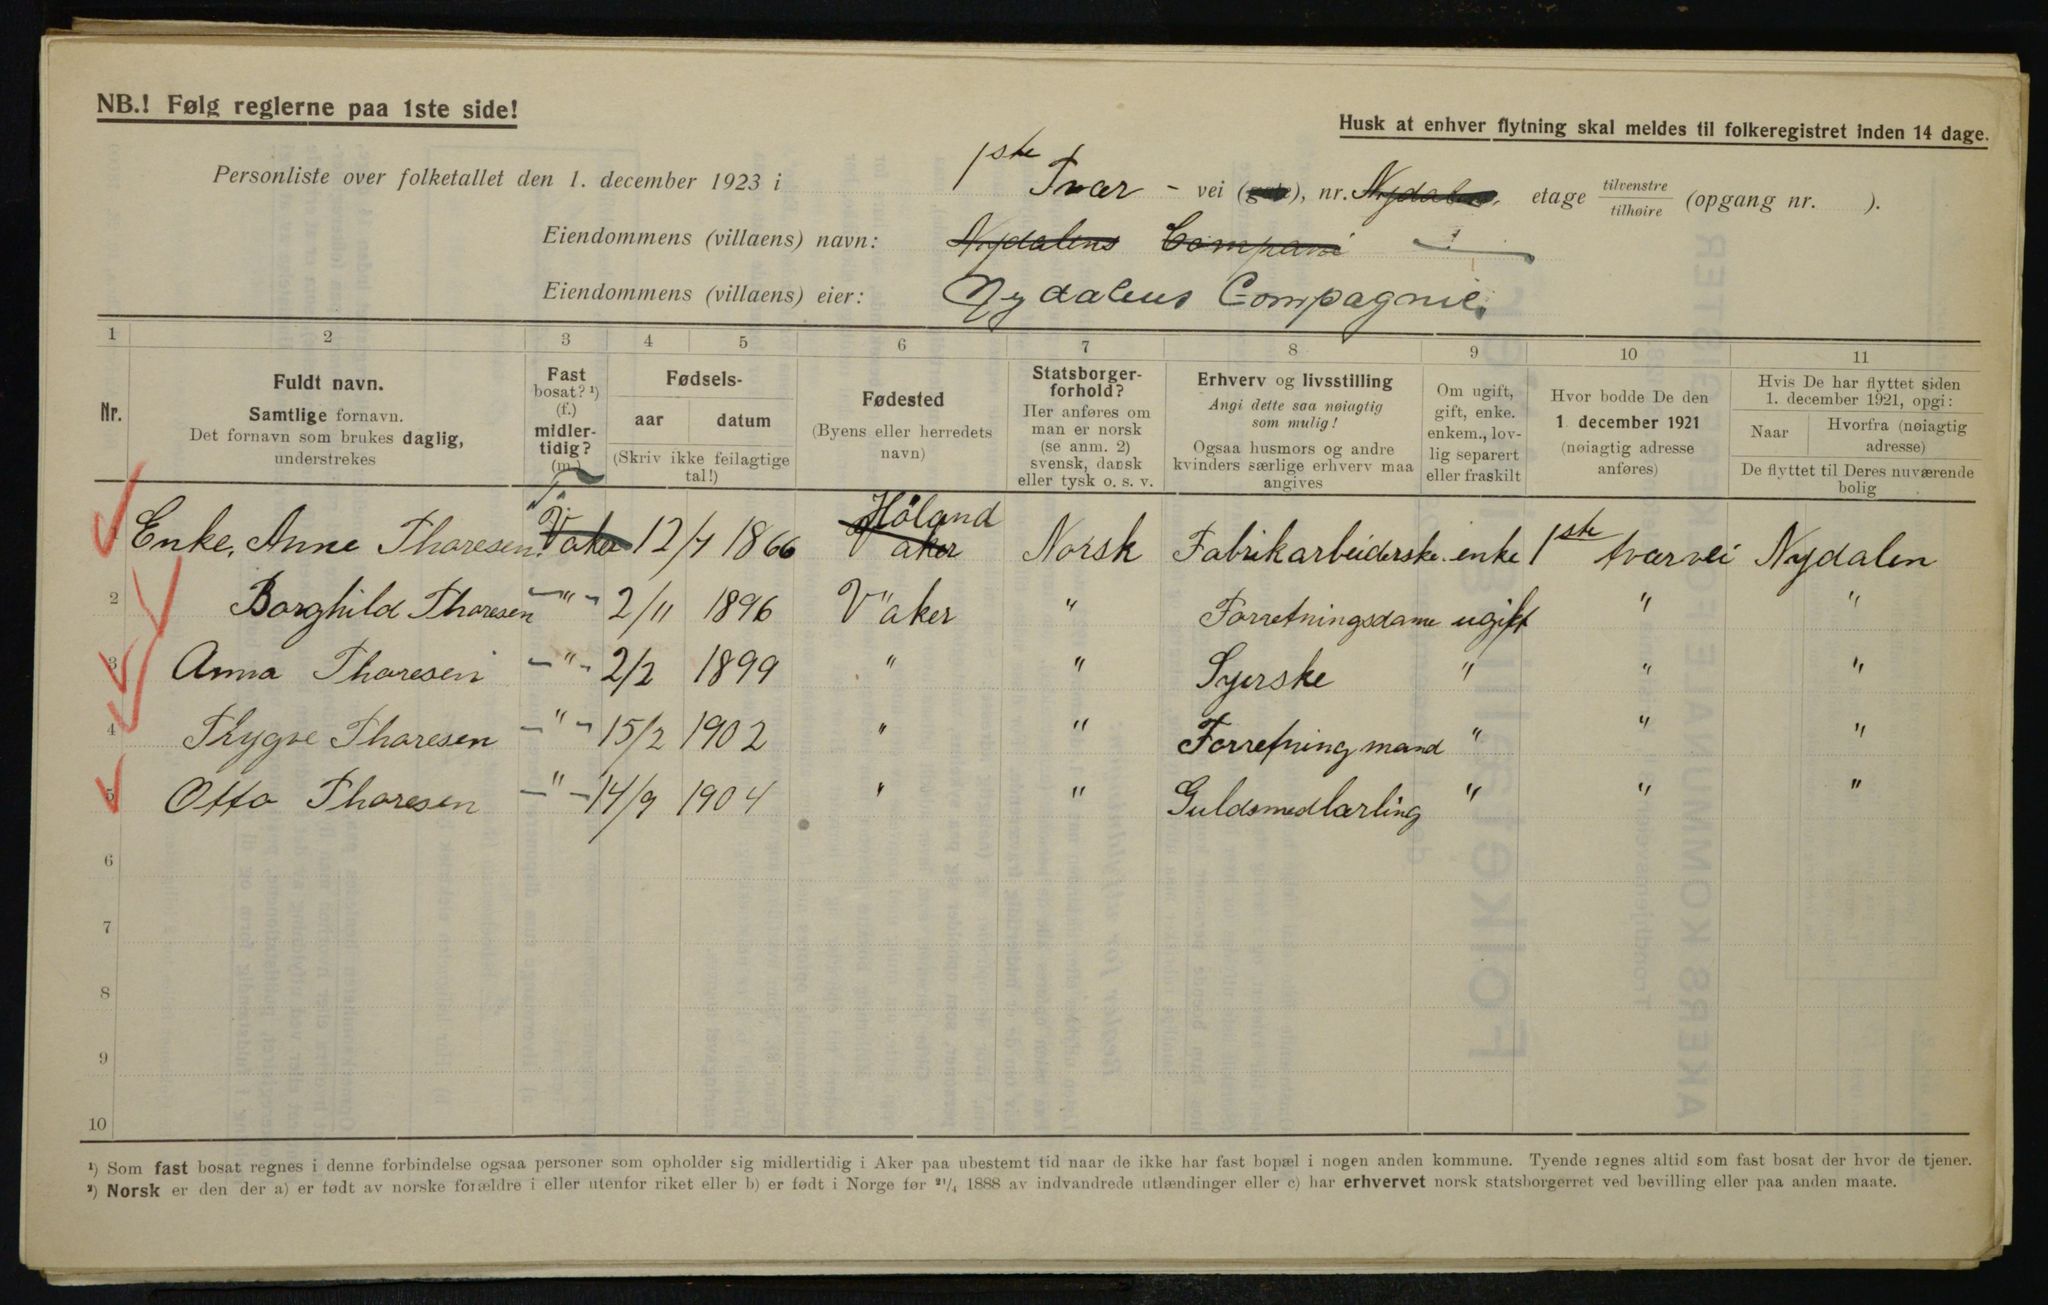 NB.! Følg reglerne paa 1ste side!
Husk at enhver flytning skal meldes til folkeregistret inden 14 dage.
Personliste over folketallet den 1. december 1923 i 1ste Tvær - vei (gate), nr. Nydalen, etage tilvenstre tilhøire (opgang nr. ).
Eiendommens (villaens) navn: Nydalens Compani
Eiendommens (villaens) eier: Nydalens Compagnie.
1 2 3 4 5 6 7 8 9 10 11
Nr.
Fuldt navn.
Samtlige fornavn.
Det fornavn som brukes daglig,
understrekes
Fast
bosat? ¹)
(f.)
midler-
tidig?
(m.)
Fødsels-
aar datum
(Skriv ikke feilagtige
tal!)
Fødested
(Byens eller herredets
navn)
Statsborger-
forhold?
Her anføres om
man er norsk
(se anm. 2)
svensk, dansk
eller tysk o. s. v.
Erhverv og livsstilling
Angi dette saa nøiagtig
som mulig!
Ogsaa husmors og andre
kvinders særlige erhverv maa
angives
Om ugift,
gift, enke.
enkem., lov-
lig separert
eller fraskilt
Hvor bodde De den
1. december 1921
(nøiagtig adresse
anføres)
Hvis De har flyttet siden
1. december 1921, opgi:
Naar Hvorfra (nøiagtig
adresse)
De flyttet til Deres nuværende
bolig
Høland
Enke, Anne Thoresen. V aker 12/7 1866 V aker Norsk Fabrikarbeiderske. enke 1ste tværvei Nydalen
2 Borghild Thoresen —"- 2/11 1896 V aker " Forretningsdame ugift " "
3 Anna Thoresen —"- 2/2 1899 " " Syerske " " "
4 Trygve Thoresen —"- 15/2 1902 " " Forretning mand " " "
5 Otto Thoresen —"- 14/9 1904 " " Guldsmedlærling " " "
6
7
8
9
10
¹) Som fast bosat regnes i denne forbindelse ogsaa personer som opholder sig midlertidig i Aker paa ubestemt tid naar de ikke har fast bopæl i nogen anden kommune. Tyende regnes altid som fast bosat der hvor de tjener.
²) Norsk er den der a) er født av norske forældre i eller utenfor riket eller b) er født i Norge før ²¹/₄ 1888 av indvandrede utlændinger eller c) har erhvervet norsk statsborgerret ved bevilling eller paa anden maate.